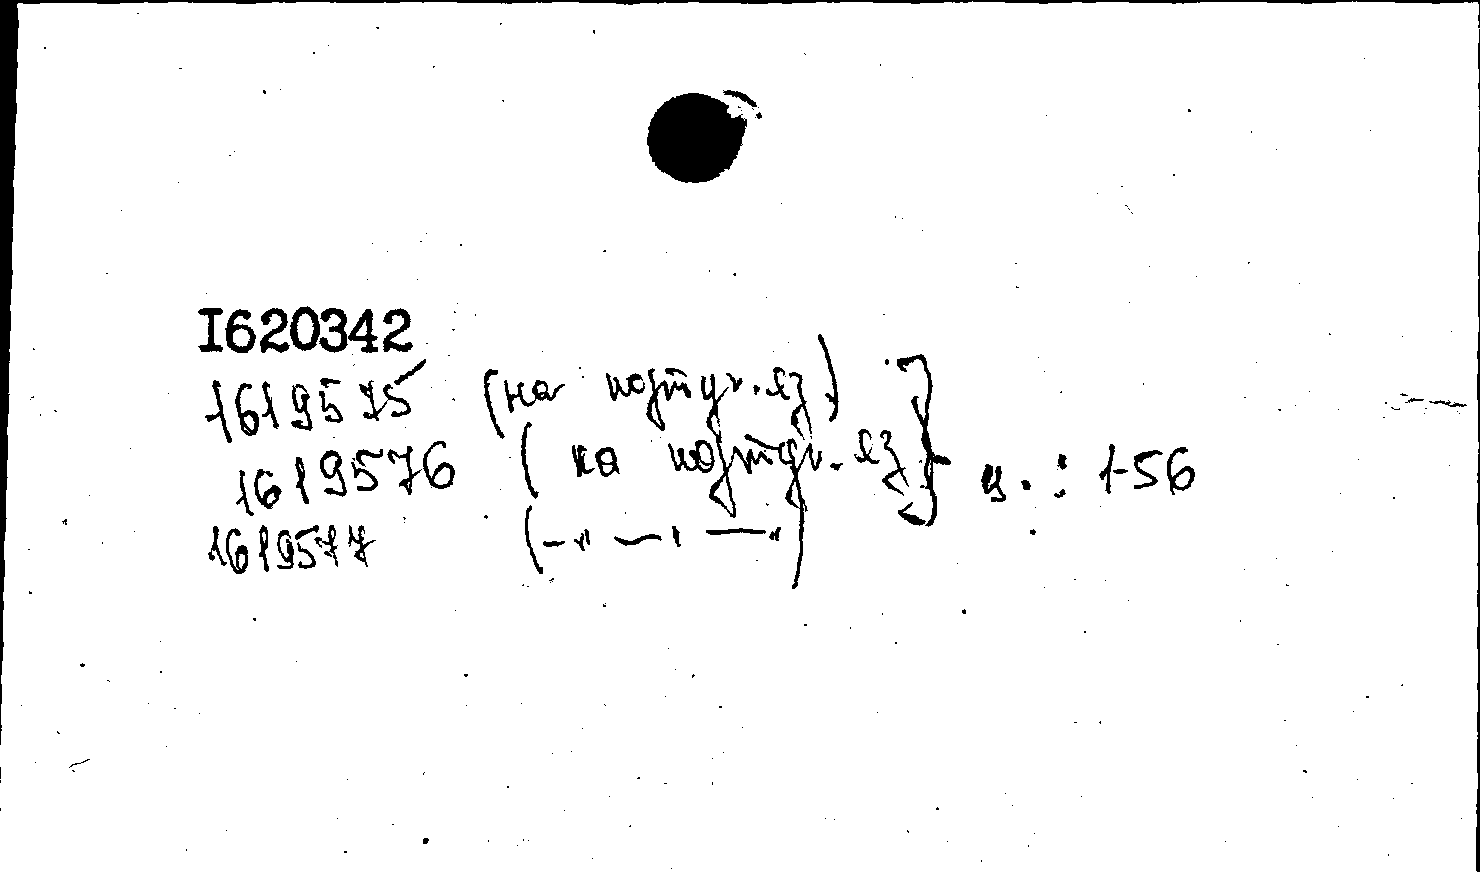 I620342
1619575 (на португ. яз)
1619576 (на португ. яз) } ц.: 1-56
1619577 (—"— " —")